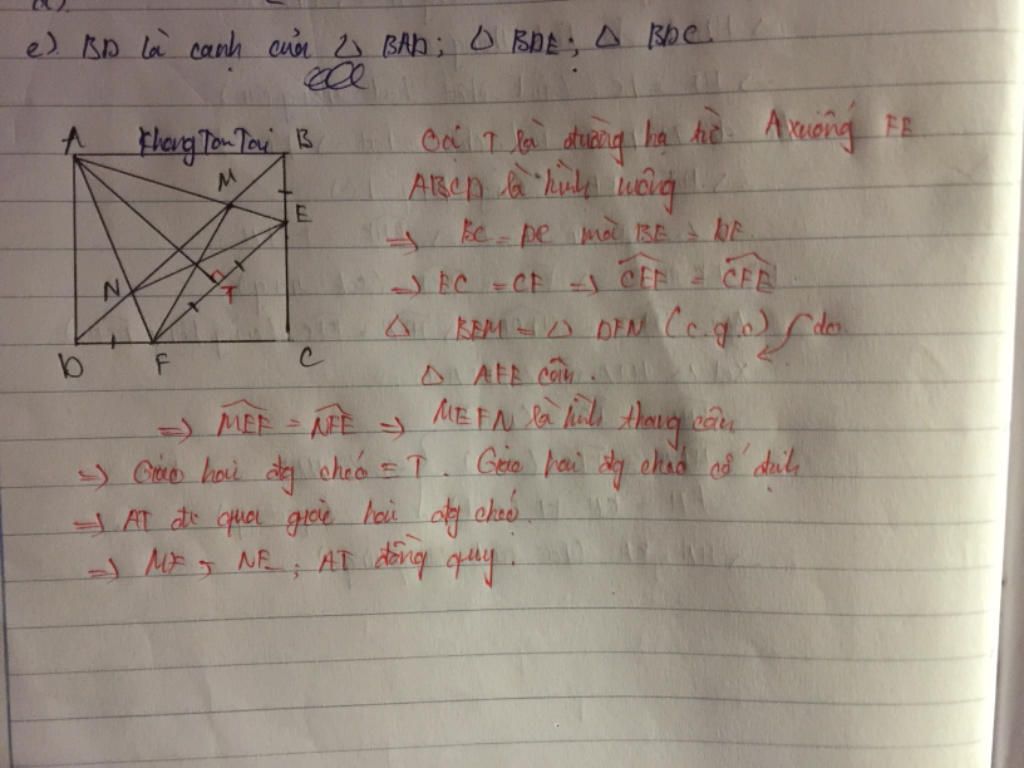 e). BD là cạnh của △ BAD; △ BDE; △ BDC.
A KhangTonTai B
M
E
N
T
D F C
Gọi T là đường hạ từ A xuống FE
ABCD là hình vuông
=> BC = DC mà BE = DF
=> EC = CF => CEF = CFE
△ BEM = △ DFN (c.g.c) do
△ AFE cân.
=> MEF = NFE => MEFN là hình thang cân
=> Giao hai đg cheó = T. Giao hai đg cheó cố định
=> AT đi qua giao hai đg cheó.
=> MF, NE; AT đồng quy.